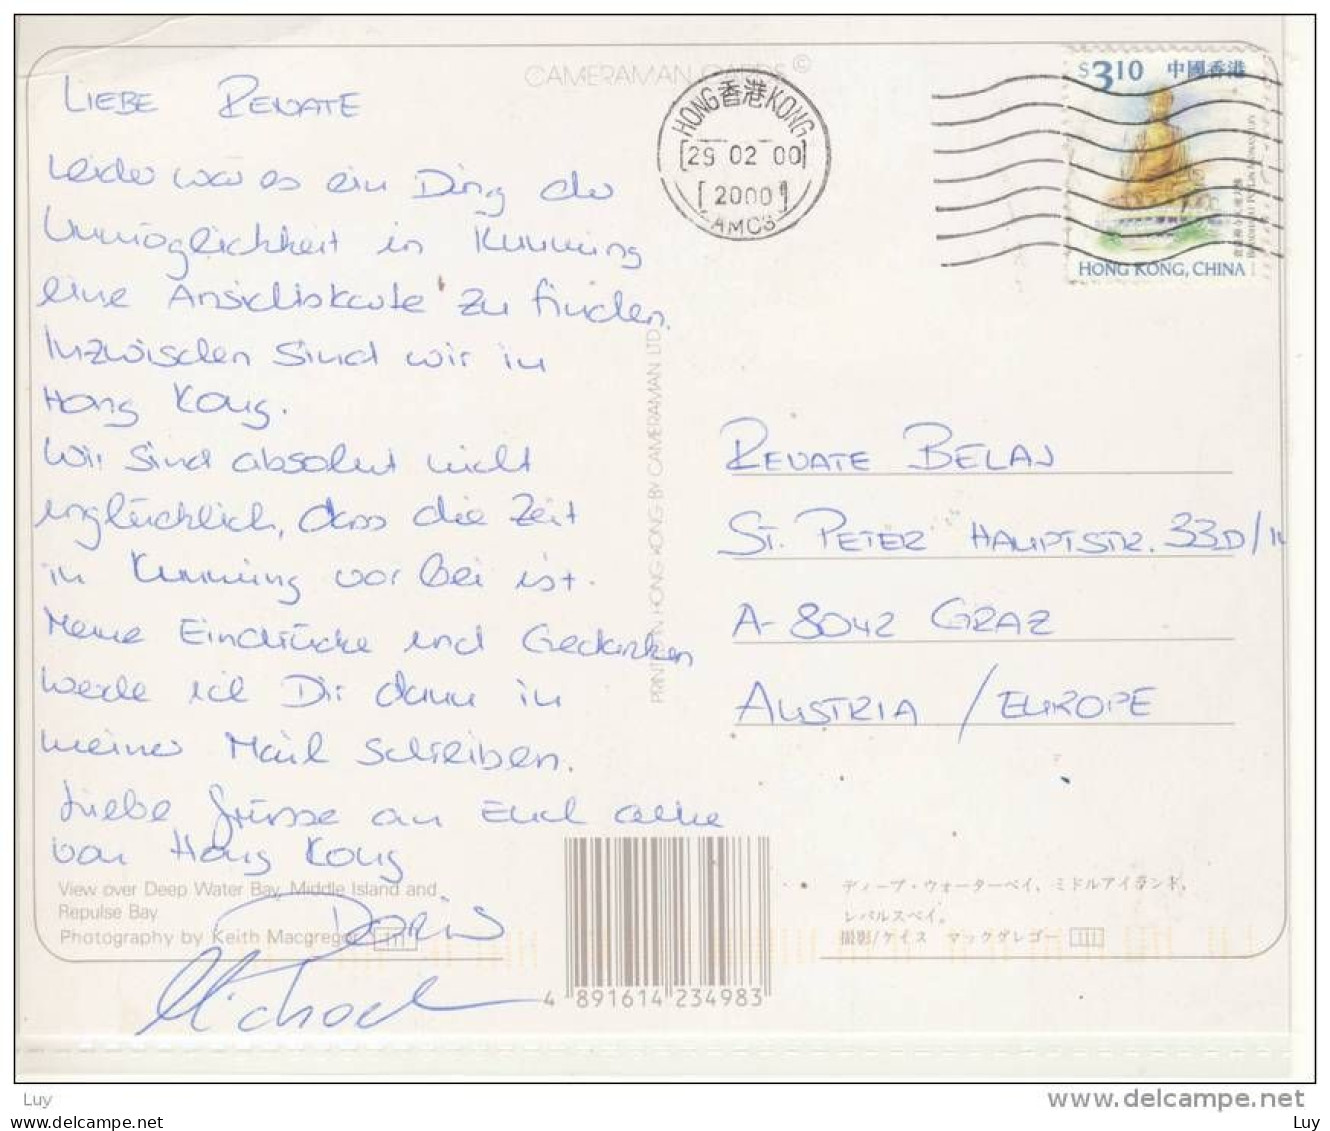 CAMERAMAN CARDS ©
LIEBE RENATE
Leider war es ein Ding der
Unmöglichkeit in Kunming
eine Ansichtskarte zu finden.
Inzwischen sind wir in
Hong Kong.
Wir sind absolut nicht
unglücklich, dass die Zeit
in Kunming vorbei ist.
Meine Eindrücke und Gedanken
werde ich Dir dann in
meiner Mail schreiben.
Liebe Grüsse an Euch alle
von Hong Kong
DORIS
Michael
View over Deep Water Bay, Middle Island and
Repulse Bay
Photography by Keith Macgregor
PRINTED IN HONG KONG BY CAMERAMAN LTD.
HONG 香港 KONG
29 02 00
2000
AMCS
$3.10 中國香港
HONG KONG, CHINA
RENATE BELAJ
ST. PETER HAUPTSTR. 33D/
A-8042 GRAZ
AUSTRIA / EUROPE
ディープ・ウォーターベイ、ミドルアイランド、
レパルスベイ。
撮影/ケイス マックグレゴー
4 891614 234983
Luy
www.delcampe.net
Luy
Luy